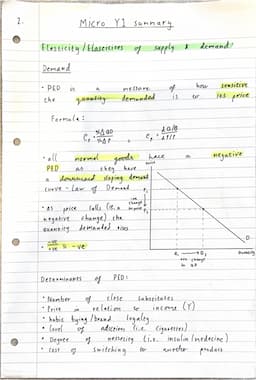 2.
Micro Y1 summary
Elasticity/Elasticities of supply & demand:
Demand
• PED is a measure of how sensitive
the quantity demanded is to its price
Formula:
• all normal goods have a negative
PED as they have
a downward sloping demand
curve - Law of Demand
• As price falls (i.e. a
negative change) the
quantity demanded rises
• +ve/-ve = -ve
-ve change in price
+ve change in QD
D
Quantity
Determinants of PED:
• Number of close substitutes
• Price in relation to income (Y)
• habit buying/brand loyalty
• Level of addiction (i.e. cigarettes)
• Degree of necessity (i.e. insulin/medecine)
• Cost of switching to another product